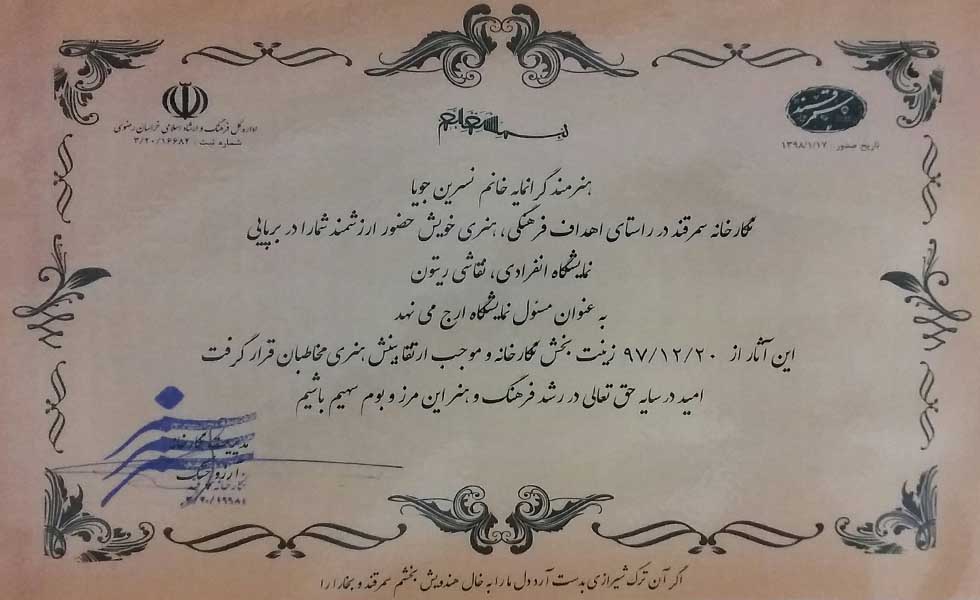 بسمه تعالی
سمرقند
تاریخ صدور : ۱۳۹۸/۱/۱۷
اداره کل فرهنگ و ارشاد اسلامی خراسان رضوی
شماره ثبت : ۳/۲۰/۱۶۶۸۲
هنرمند گرانمایه خانم نسرین جویا
نگارخانه سمرقند در راستای اهداف فرهنگی، هنری خویش حضور ارزشمند شما را در برپایی
نمایشگاه انفرادی، نقاشی ریتون
به عنوان مسئول نمایشگاه ارج می نهد
این آثار از ۹۷/۱۲/۲۰ زینت بخش نگارخانه و موجب ارتقا بینش هنری مخاطبان قرار گرفت
امید در سایه حق تعالی در رشد فرهنگ و هنر این مرز و بوم سهیم باشیم
مدیریت نگارخانه
آرزو
اگر آن ترک شیرازی بدست آرد دل ما را به خال هندویش بخشم سمرقند و بخارا را